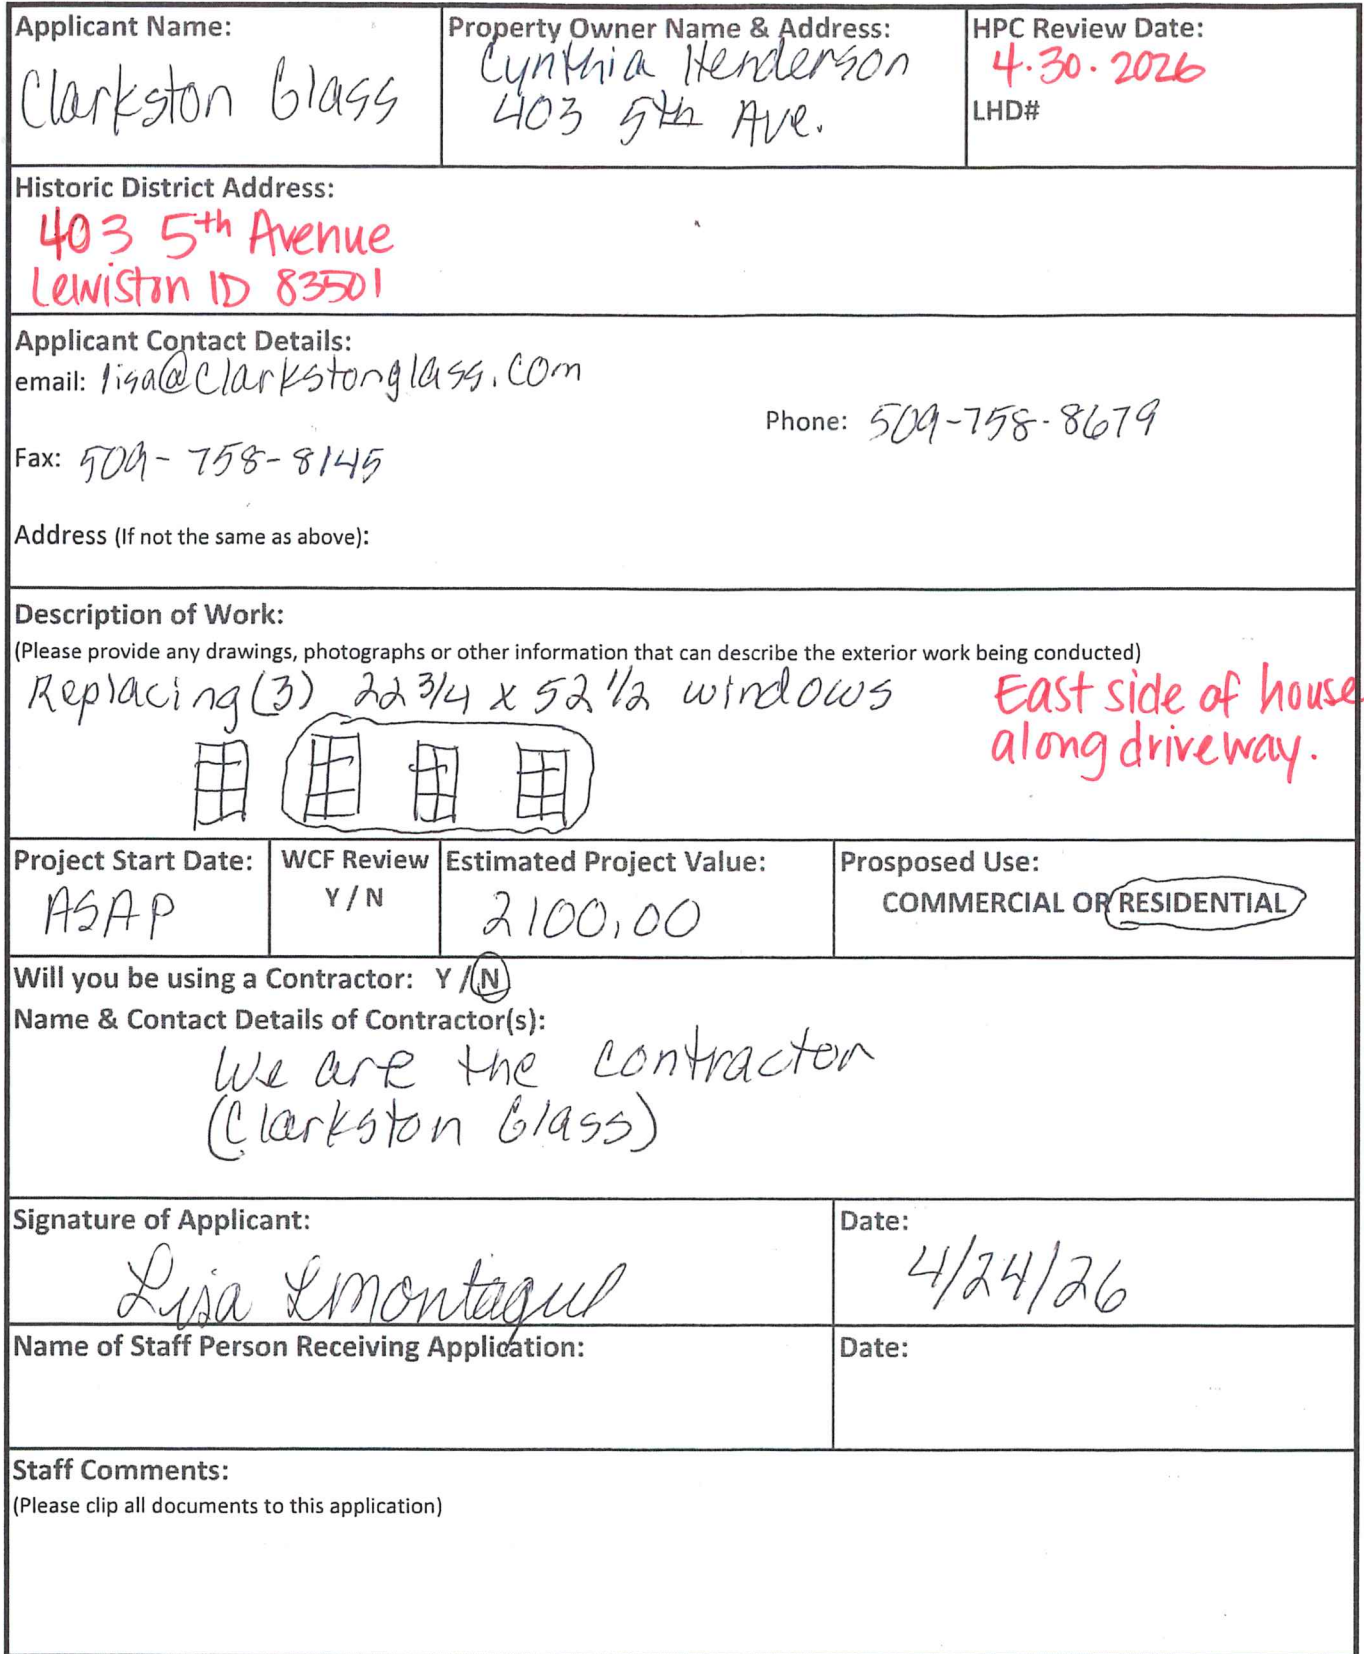 Applicant Name:
Clarkston Glass
Property Owner Name & Address:
Cynthia Henderson
403 5th Ave.
HPC Review Date:
4.30.2026
LHD#
Historic District Address:
403 5th Avenue
Lewiston ID 83501
Applicant Contact Details:
email: lisa@clarkstonglass.com
Phone: 509-758-8679
Fax: 509-758-8145
Address (If not the same as above):
Description of Work:
(Please provide any drawings, photographs or other information that can describe the exterior work being conducted)
Replacing (3) 22 3/4 x 52 1/2 windows
East side of house
along driveway.
Project Start Date:
ASAP
WCF Review
Y / N
Estimated Project Value:
2100.00
Prosposed Use:
COMMERCIAL OR RESIDENTIAL
Will you be using a Contractor: Y / N
Name & Contact Details of Contractor(s):
We are the contractor
(Clarkston Glass)
Signature of Applicant:
Lisa L Montague
Date:
4/24/26
Name of Staff Person Receiving Application:
Date:
Staff Comments:
(Please clip all documents to this application)